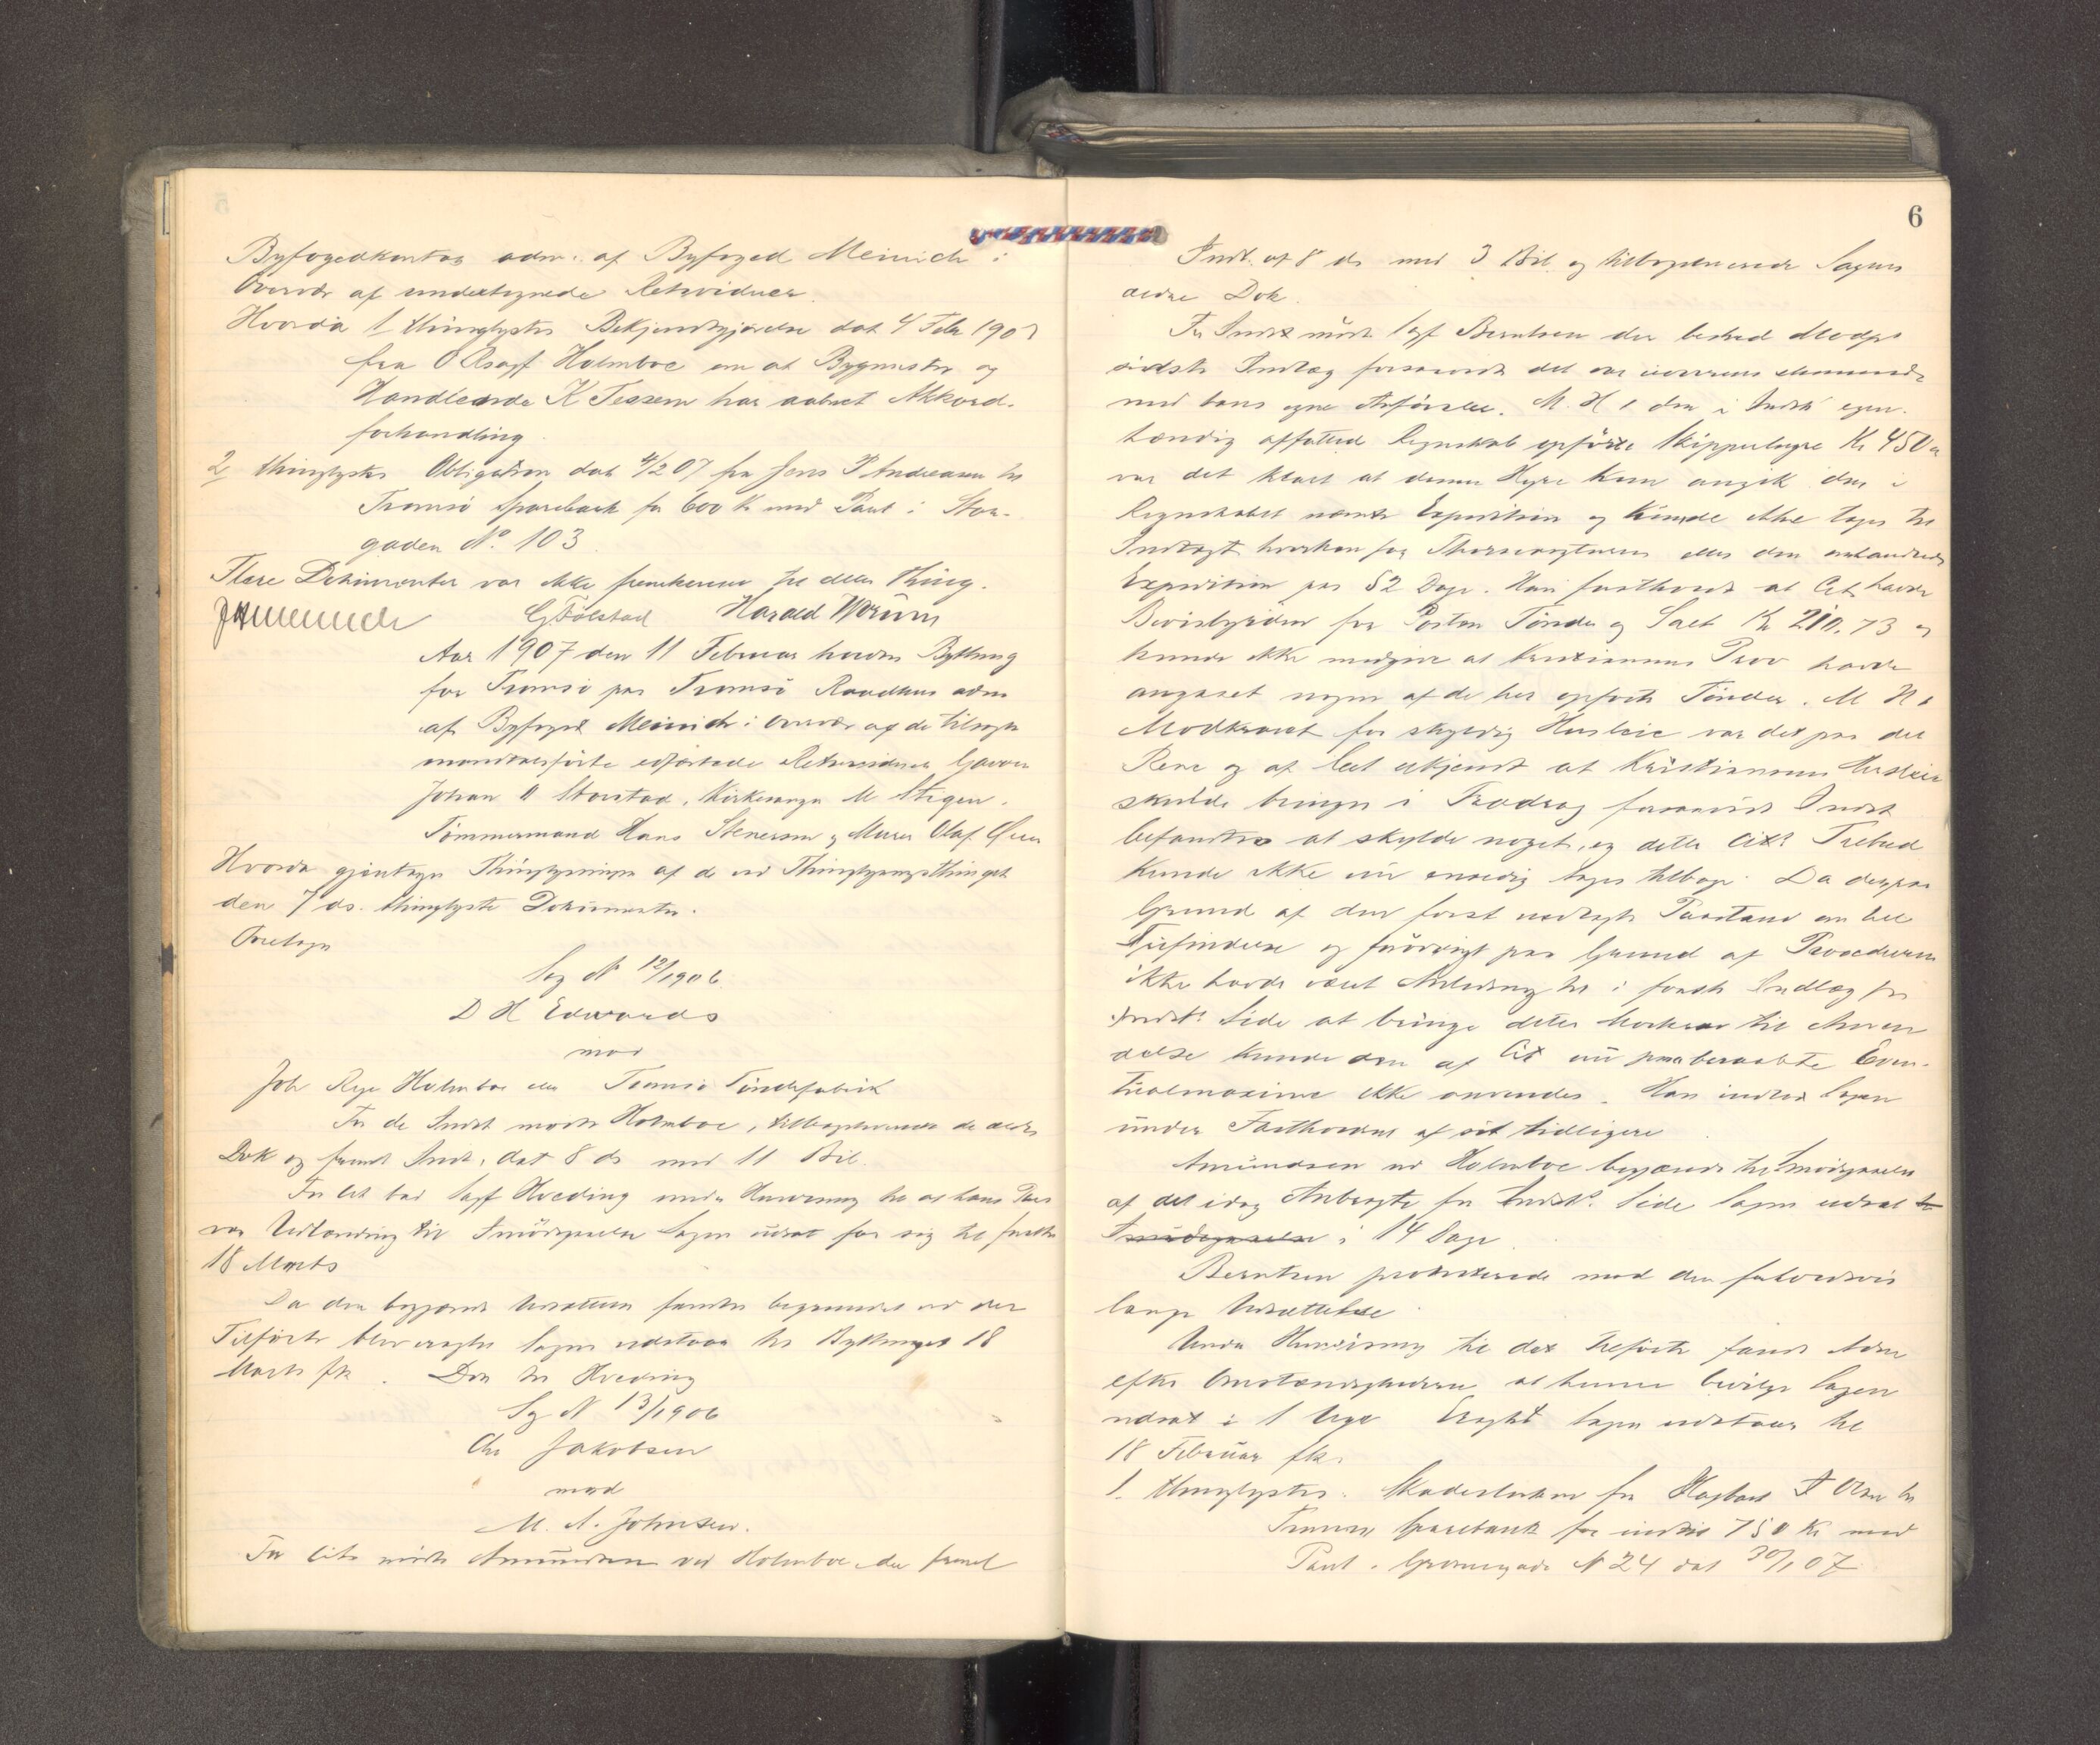 Byfogedkontor adm. af Byfoged Meinich i
Overvær af undertegnede Retsvidner.
Hvorda 1 thinglystes Bekjendtgjørelse dat 4 Febr 1907
fra O.Rsagf Holmboe om at Bygmester og
Handlende K Tessem har aabnet Akkord-
forhandling.
2 thinglystes Obligation dat 4/2 07 fra Jens P Andreasen til
Tromsø Sparebank for 600 Kr med Pant i Stor-
gaden No. 103
Flere Dokumenter var ikke fremkomne til dette Thing.
Meinich G. Tølstad Harald Worum
Aar 1907 den 11 Februar holdtes Bything
for Tromsø paa Tromsø Raadhus adm
af Byfoged Meinich i Overvær af de tilsagte
mandtalsførte edfæstede Retsvidner Garver
Johan A Storstad, Kirkesanger M Stigen,
Tømmermand Hans Stenersen og Murer Olaf
Hvorda gjentoges Thinglysningen af de ved Thinglysningsthinget
den 7 ds. thinglyste Dokumenter.
Foretoges
Sag No 12/1906.
D H Edwards
mod
Joh Rye Holmboe eller Tromsø Tøndefabrik
For de Indst mødte Holmboe, tilbageleverede de ældre
Dok og freml Indl. dat 8 ds med 11 Bil.
For Cit bad Sagf Hveding under Henvisning til at hans Part
var Udlænding til Imødegaaelse Sagen udsat for sig til første
18 Marts
Da den begjærede Udsættelse fandtes begrundet ved det
Tilførte blev eragtet Sagen udstaar til Bythinget 18
Marts fk. Dok til Hveding
Sag No 13/1906
Chr Jakobsen
mod
M. A. Johnsen.
For Cit. mødte Amundsen ved Holmboe der freml
6
Indl. af 8 ds med 3 Bil. og tilbageleverede Sagens
ældre Dok.
For Indst mødte Sagf Berntsen der bestred Modp.s
sidste Indlæg forsaavidt det var uoverensstemmende
med hans egne Anførsler. M. H t den i Indst egen-
hændig affattede Regnskab opførte Skipperhyre Kr 450
var det klart at denne Hyre kun angik den i
Regnskabet nævnte Expedition og kunde ikke tages til
Indtægt hverken for eller den omhandlede
Expedition paa 52 Dage. Han fastholdt at Cit havde
Bevisbyrden for Posten Tønder og Salt Kr 210,73 og
kunde ikke medgive at Kristiansens Prov havde
angaaet nogen af de her opførte Tønder. M H t
Modkravet for skyldig Husleie var det paa det
Rene og af Cit erkjendt at Kristiansens Husleie
skulde bringes i Fradrag forsaavidt Indst
befandtes at skylde noget, og dette Cits Tilbud
kunde ikke nu ensidig tages tilbage. Da der paa
Grund af den først nedlagte Paastand om hel
Frifindelse og forøvrigt paa Grund af Proceduren
ikke havde været Anledning til i første Indlæg fra
Indst.s Side at bringe dette Modkrav til Anven-
delse kunde den af Cit nu paaberaabte Even-
tualmaxime ikke anvendes. Han indlod Sagen
under Fastholden af sit tidligere
Amundsen ved Holmboe begjærede til Imødegaaelse
af det idag Anbragte fra Indst.s Side Sagen udsat til
Imødegaaelse i 14 Dage.
Berntsen protesterede mod den forholdsvis
lange Udsættelse.
Under Henvisning til det tilførte fandt Adm
efter Omstændighederne at kunne bevilge Sagen
udsat i 1 Uge. Eragtet Sagen udstaar til
18 Februar fk.
1. thinglystes. Skadesløsbrev fra Hagbart J Olsen til
Tromsø Sparebank for indtil 750 Kr med
Pant i Grønnegade No 24 dat 30/1 07